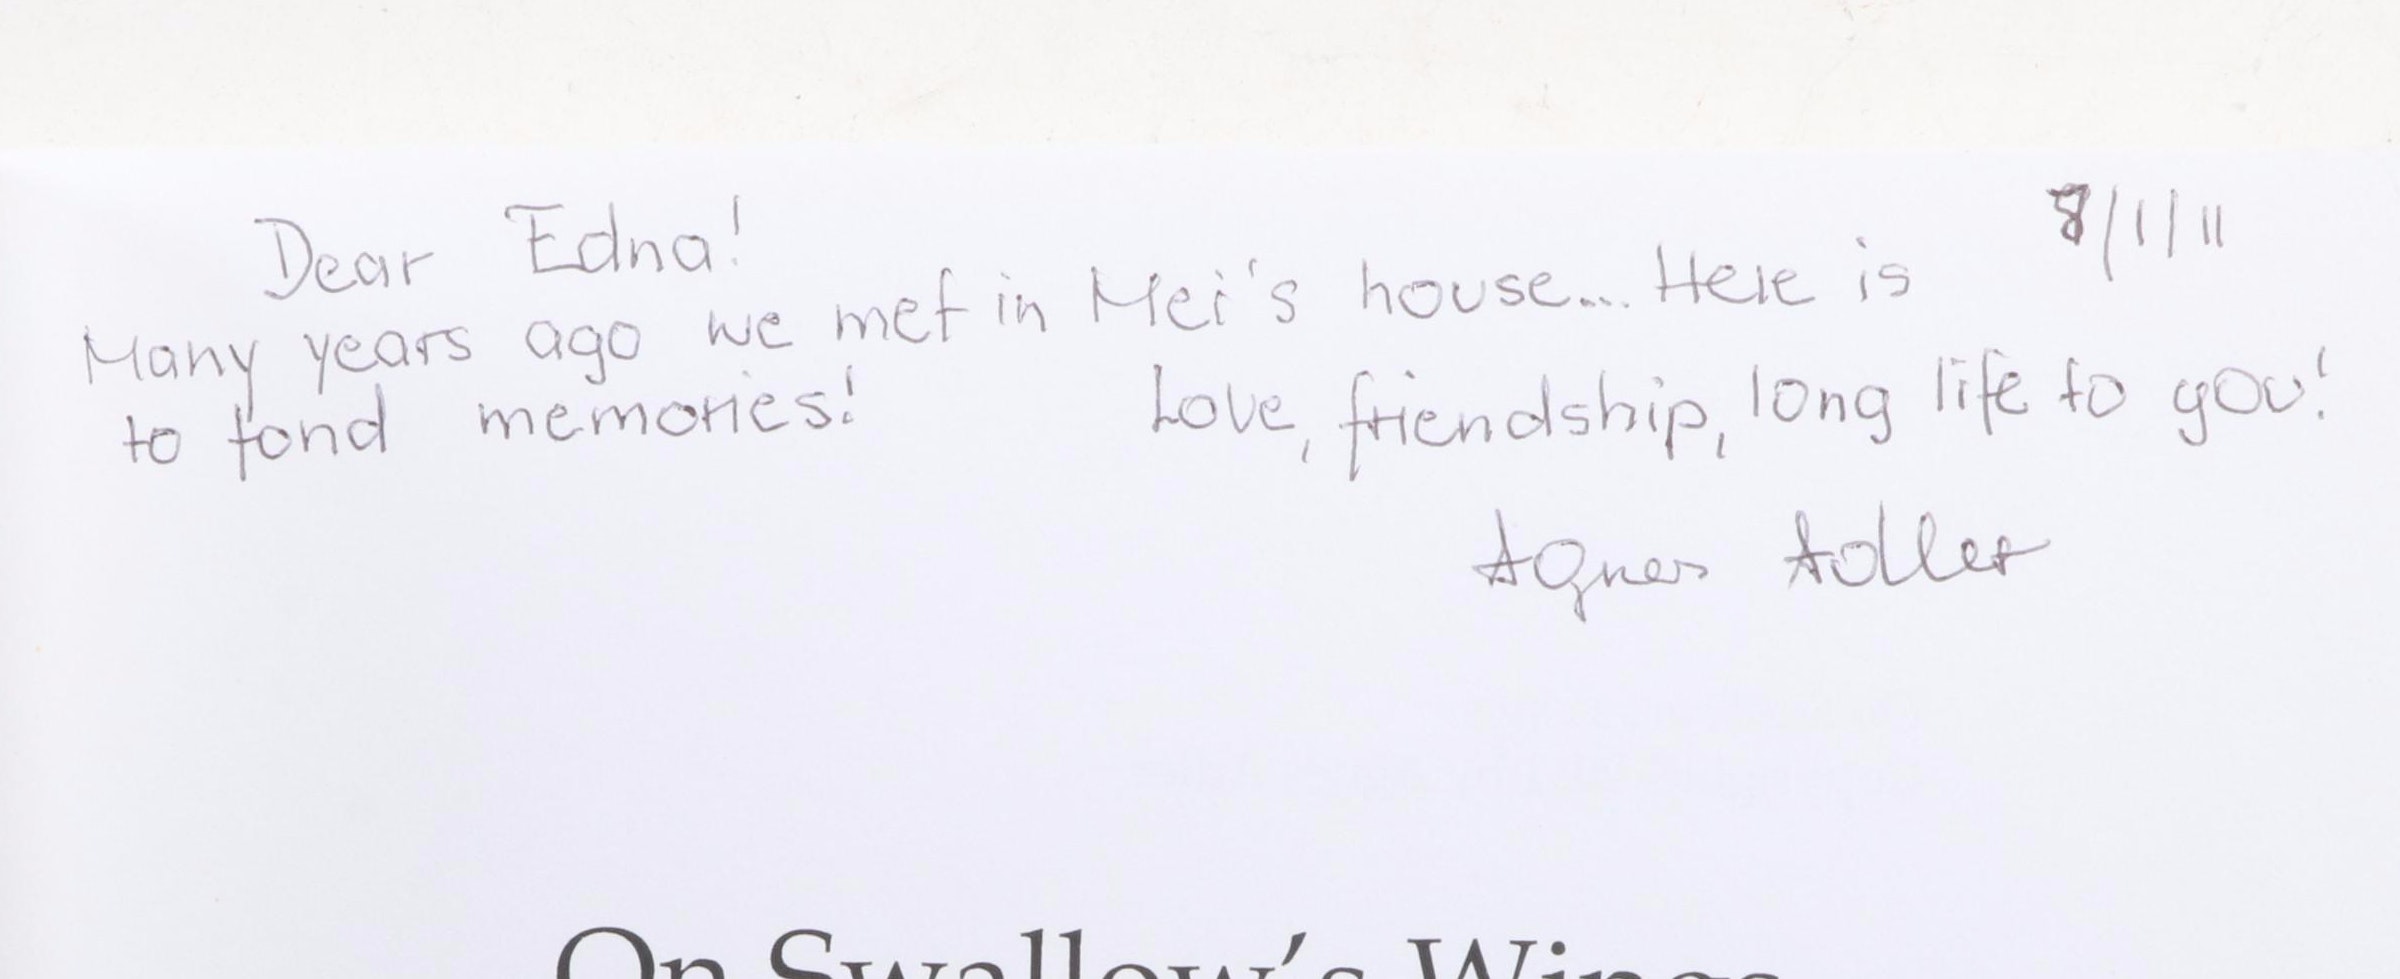 8/1/11
Dear Edna!
Many years ago we met in Mei's house... Here is
to fond memories! Love, friendship, long life to you!
Agnes Adler
On Swallow's Wings